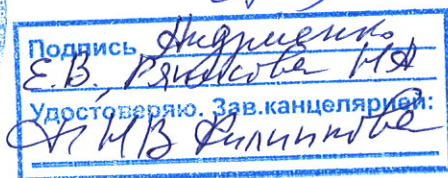 Подпись Андриенко
Е.В., Рянжова НА
Удостоверяю. Зав.канцелярией:
НВ Филиппова